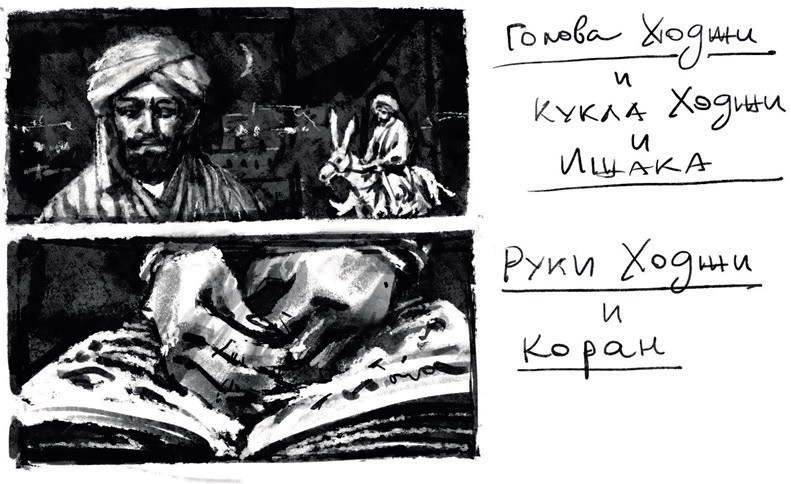 Голова Ходжи
и
кукла Ходжи
и
Ишака
Руки Ходжи
и
Коран